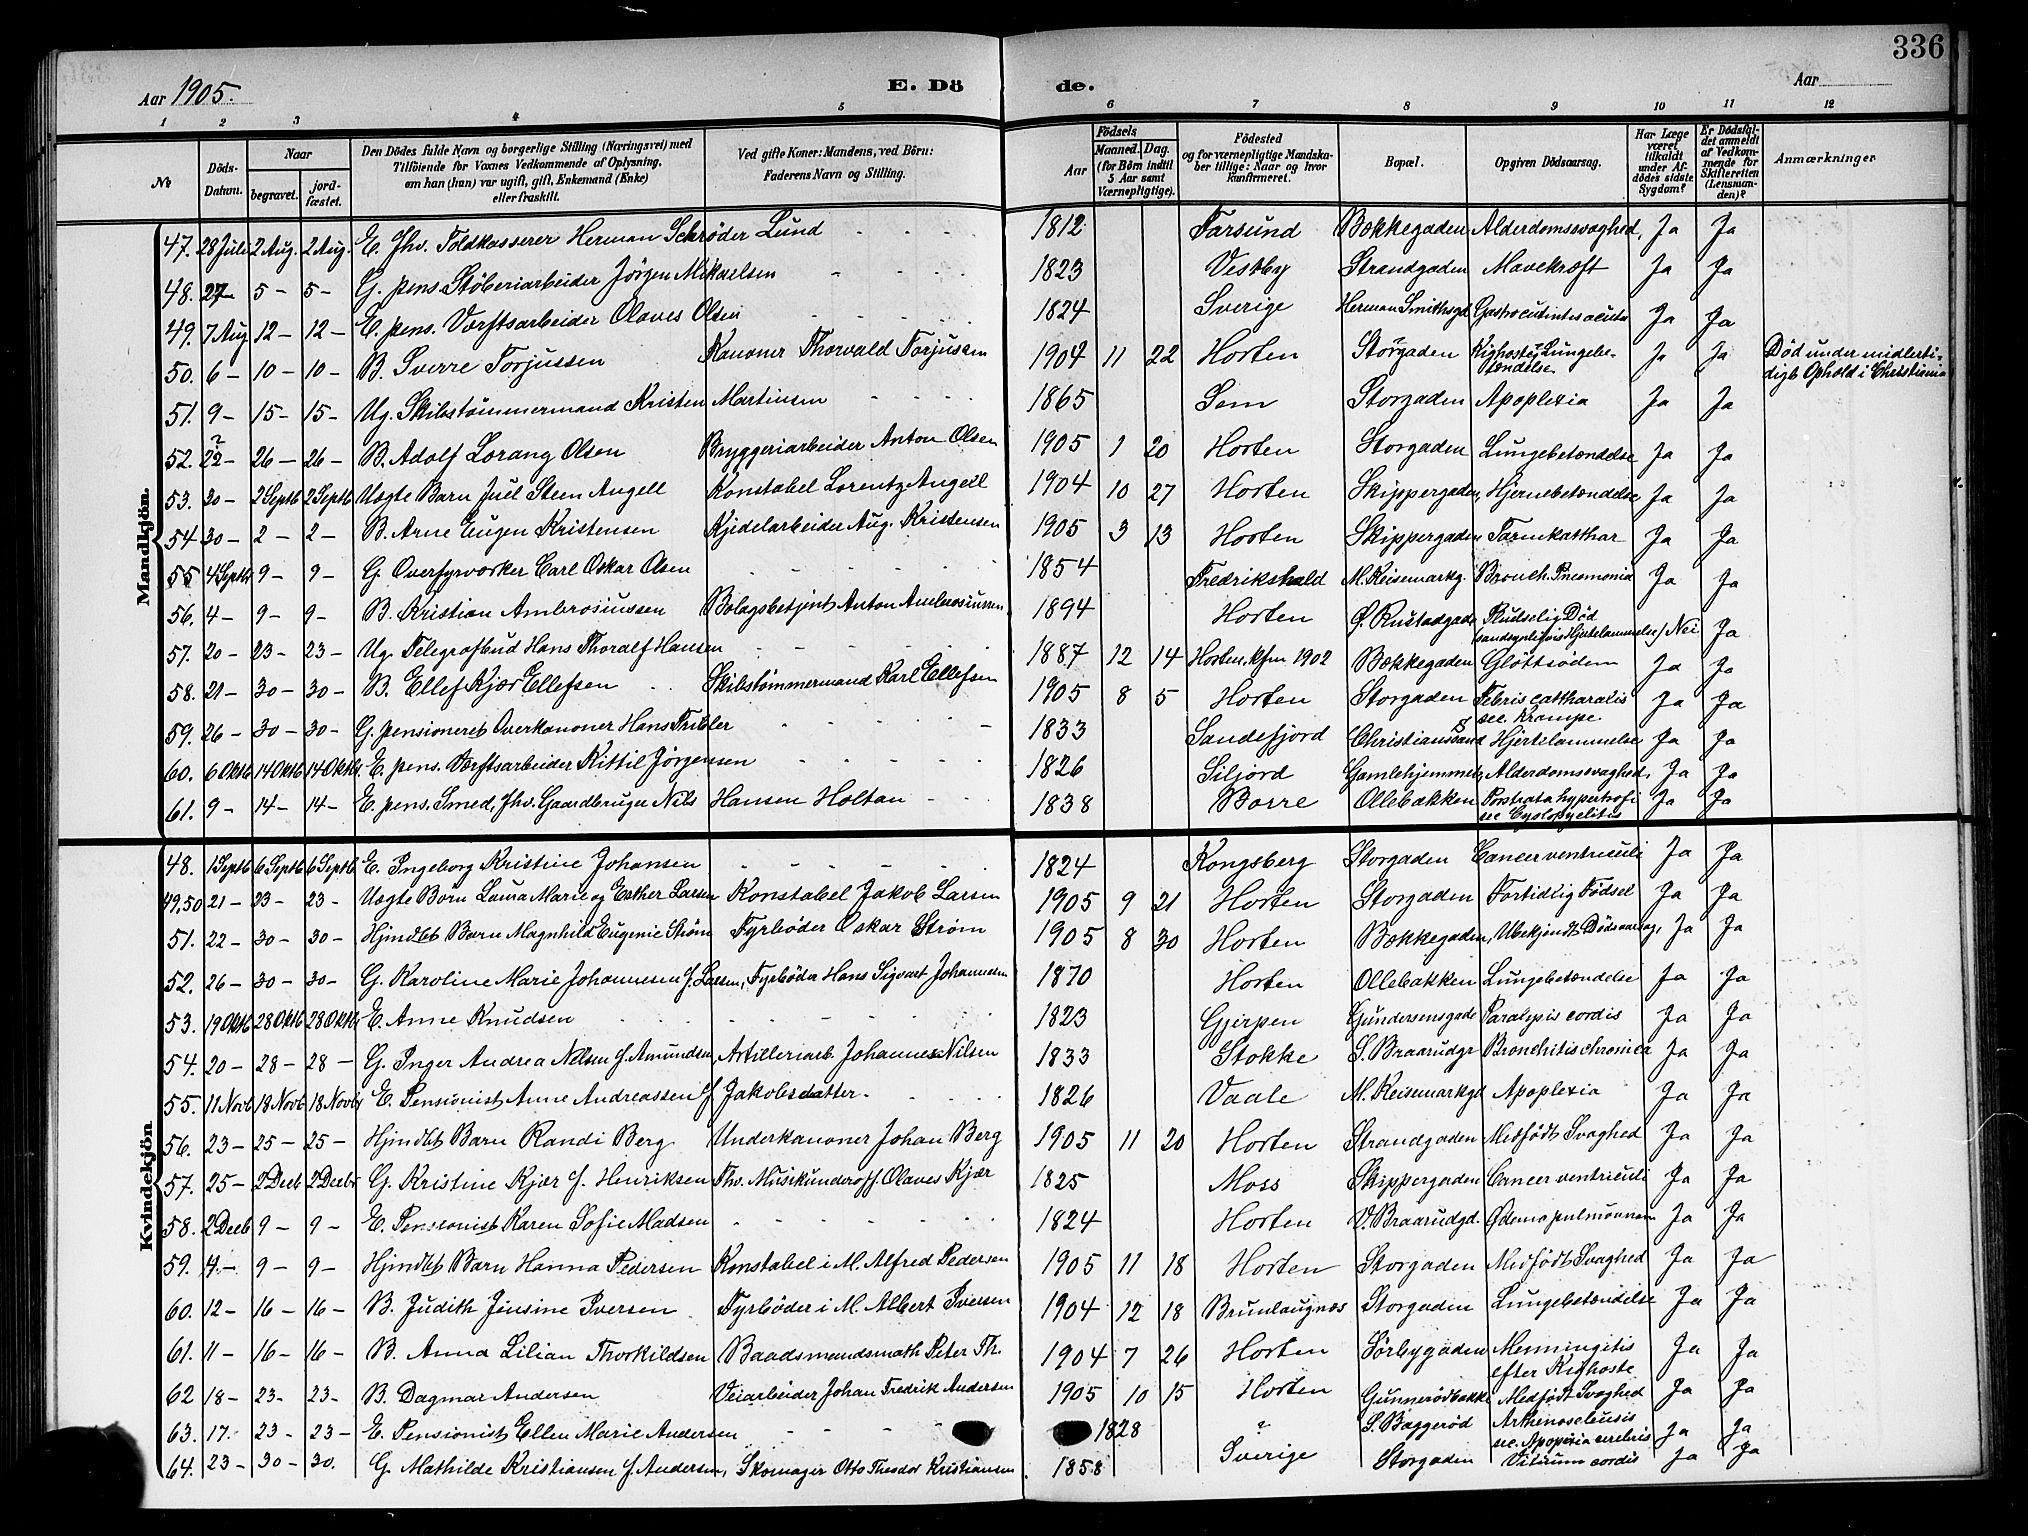 336
Aar 1905. E. Dö de. Aar
1 2 3 4 5 6 7 8 9 10 11 12
№ Döds-Datum. Naar begravet. jord-fæstet. Den Dödes fulde Navn og borgerlige Stilling (Næringsvei) med Tilföiende for Voxnes Vedkommende af Oplysning, om han (hun) var ugift, gift, Enkemand (Enke) eller fraskilt. Ved gifte Koner: Mandens, ved Börn: Faderens Navn og Stilling. Aar Födsels Maaned. Dag. (for Börn indtil 5 Aar samt Værnepligtige). Födested og for værnepligtige Mandska-ber tillige: Naar og hvor konfirmeret. Bopæl. Opgiven Dödsaarsag. Har Læge været tilkaldt under Af-dödes sidste Sygdom? Er Dödsfal-det anmeldt af Vedkom-mende for Skifteretten (Lensman-den)? Anmærkninger
Mandkjön.
47. 28 Juli 2 Aug. 2 Aug. E. Fhv. Toldkasserer Herman Schrøder Lund 1812 Farsund Bækkegaden Alderdomssvaghed, Ja Ja
48. 27- 5- 5- G. pens. Støberiarbeider Jörgen Mikaelsen 1823 Vestby Strandgaden Mavekræft Ja Ja
49. 7 Aug 12- 12- E. pens. Værftsarbeider Olaves Olsen 1824 Sverige Herman Smithsgd Ja Ja
50. 6- 10- 10- B. Sverre Torjussen Kanoner Thorvald Torjussen 1904 11 22 Horten Storgaden Kighoste, Lungebe-tændelse Ja Ja Död under midlerti-digt Ophold i Christiania
51. 9- 15- 15- Ug. Skibstømmermand Kristen Martinsen 1865 Sem Storgaden Apoplexia Ja Ja
52. 22- 26- 26- B. Adolf Lorang Olsen Bryggeriarbeider Anton Olsen 1905 1 20 Horten Storgaden Lungebetændelse Ja Ja
53. 30- 2 Septb 2 Septb Uægte Barn Juel Steen Angell Konstabel Lorentz Angell 1904 10 27 Horten Skippergaden, Hjernebetændelse Ja Ja
54 30- 2- 2- B. Arne Eugen Kristensen Kjedelarbeider Aug. Kristensen 1905 3 13 Horten Skippergaden Tarmkatthar Ja Ja
55 4 Septb 9- 9- G. Overfyrvorker Carl Oskar Olsen 1854 Fredrikshald M. Reisemarkg. Bronch. Pneumonia Ja Ja
56. 4- 9- 9- B. Kristian Ambrosiussen Bolagsbetjent Anton Ambrosiussen 1894 Horten Ø. Rustadgade Pludselig Död (sandsynligvis Hjertelammelse) Nei Ja
57. 20- 23- 23- Ug. Telegrafbud Hans Thoralf Hansen 1887 12 14 Horten. kfm 1902 Bækkegaden Gløttsødem Ja Ja
58. 21- 30- 30- B. Ellef Kjær Ellefsen Skibstømmermand Karl Ellefsen 1905 8 5 Horten Storgaden Febris cattharalis sec. Krampe. Ja Ja
59. 26- 30- 30- G. pensioneret Overkanoner Hans 1833 Sandefjord Christianssand Hjertelammelse Ja Ja
60. 6 Oktb 14 Oktb 14 Oktb E. pens. Værftsarbeider Kittil Jørgensen 1826 Siljord Gamlehjemmet, Alderdomssvaghed, Ja Ja
61. 9- 14- 14- E. pens. Smed, fhv. Gaardbruger Nils Hansen Holtan 1838 Borre Ollebakken Ja Ja
Kvindekjön
48. 1 Septb 6 Septb 6 Septb E. Ingeborg Kristine Johansen 1824 Kongsberg Storgaden Cancer ventriculi Ja Ja
49,50 21- 23- 23- Uægte Børn Laura Marie og Esther Larsen Konstabel Jakob Larsen 1905 9 21 Horten Storgaden Fortidlig Fødsel Ja Ja
51. 22- 30- 30- Hjmdbt Barn Magnhild Eugenie Strøm Fyrbøder Oskar Strøm 1905 8 30 Horten Bækkegaden, Ubekjendt Dødsaarsag, Ja Ja
52. 26- 30- 30- G. Karoline Marie Johannesen f. Larsen, Fyrbøder Hans Sigvart Johannesen 1870 Horten Ollebakken Lungebetændelse Ja Ja
53. 19 Oktb 28 Oktb 28 Oktb E. Anne Knudsen 1823 Gjerpen Gundersensgade Paralysis cordis Ja Ja
54. 20- 28- 28- G. Inger Andrea Nilsen f. Amundsen, Artilleriarb. Johannes Nilsen 1833 Stokke S. Braarudgt Bronchitis chronica Ja Ja
55. 11 Novb 18 Novb 18 Novb E. Pensionist Anne Andreassen f. Jakobsdatter. 1826 Vaale M. Reisemarkgd Apoplexia Ja Ja
56. 23- 25- 25- Hjmdbt Barn Randi Berg Underkanoner Johan Berg 1905 11 20 Horten Strandgaden Medfødt Svaghed Ja Ja
57. 25- 2 Decb 2 Decbr G. Kristine Kjær f. Henriksen Fhv. Musikunderoff. Olaves Kjær 1825 Moss Skippergaden Cancer ventriculi Ja Ja
58. 2 Decb 9- 9- E. Pensionist Karen Sofie Madsen 1824 Horten V. Braarudgd. Ødema pulmonum Ja Ja
59. 4- 9- 9- Hjmdbt Barn Hanna Pedersen Konstabel i M. Alfred Pedersen 1905 11 18 Horten Storgaden Medfødt Svaghed Ja Ja
60. 12- 16- 16- B. Judith Jensine Iversen Fyrbøder i M. Albert Iversen 1904 12 18 Brunlaugnæs Storgaden Lungebetændelse Ja Ja
61. 11- 16- 16- B. Anna Lilian Thorkildsen Baadsmandsmath Peter Th. 1904 7 26 Horten Sørbygaden Menningitis efter Kighoste Ja Ja
62 18- 23- 23- B. Dagmar Andersen Veiarbeider Johan Fredrik Andersen 1905 10 15 Horten Gunnerødbakke Medfødt Svaghed Ja Ja
63. 17. 23- 23- E. Pensionist Ellen Marie Andersen 1828 ? S. Baggerød sec. Apoplexia cerebris Ja Ja
64. 23- 30- 30. G. Mathilde Kristiansen f. Andersen, Skomager Otto Theodor Kristiansen 1858 Sverige Storgaden Vitium cordis Ja Ja